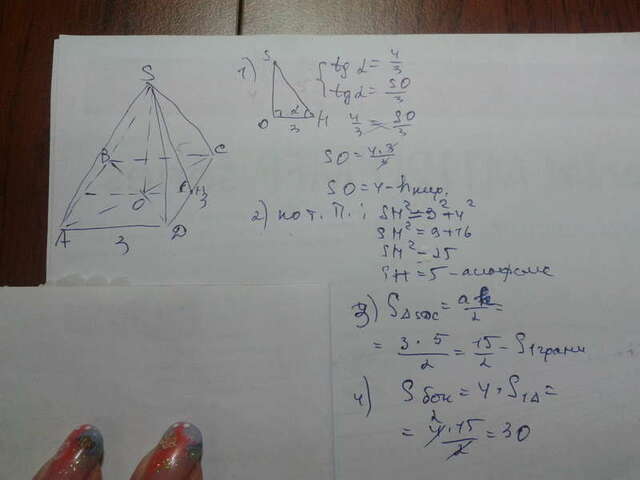 S
B
C
O
H
3
A
D
3
1)
S
O
α
H
3
tg α = 4/3
tg α = SO/3
4/3 = SO/3
SO = 4·3/3
SO = 4 - h пир.
2) по т. П.: SH² = 3² + 4²
SH² = 9 + 16
SH² = 25
SH = 5 - апофема
3) S△SDC = ah/2 =
= 3·5/2 = 15/2 - S 1 грани
4) S бок = 4·S1△ =
= 4·15/2 = 30
2